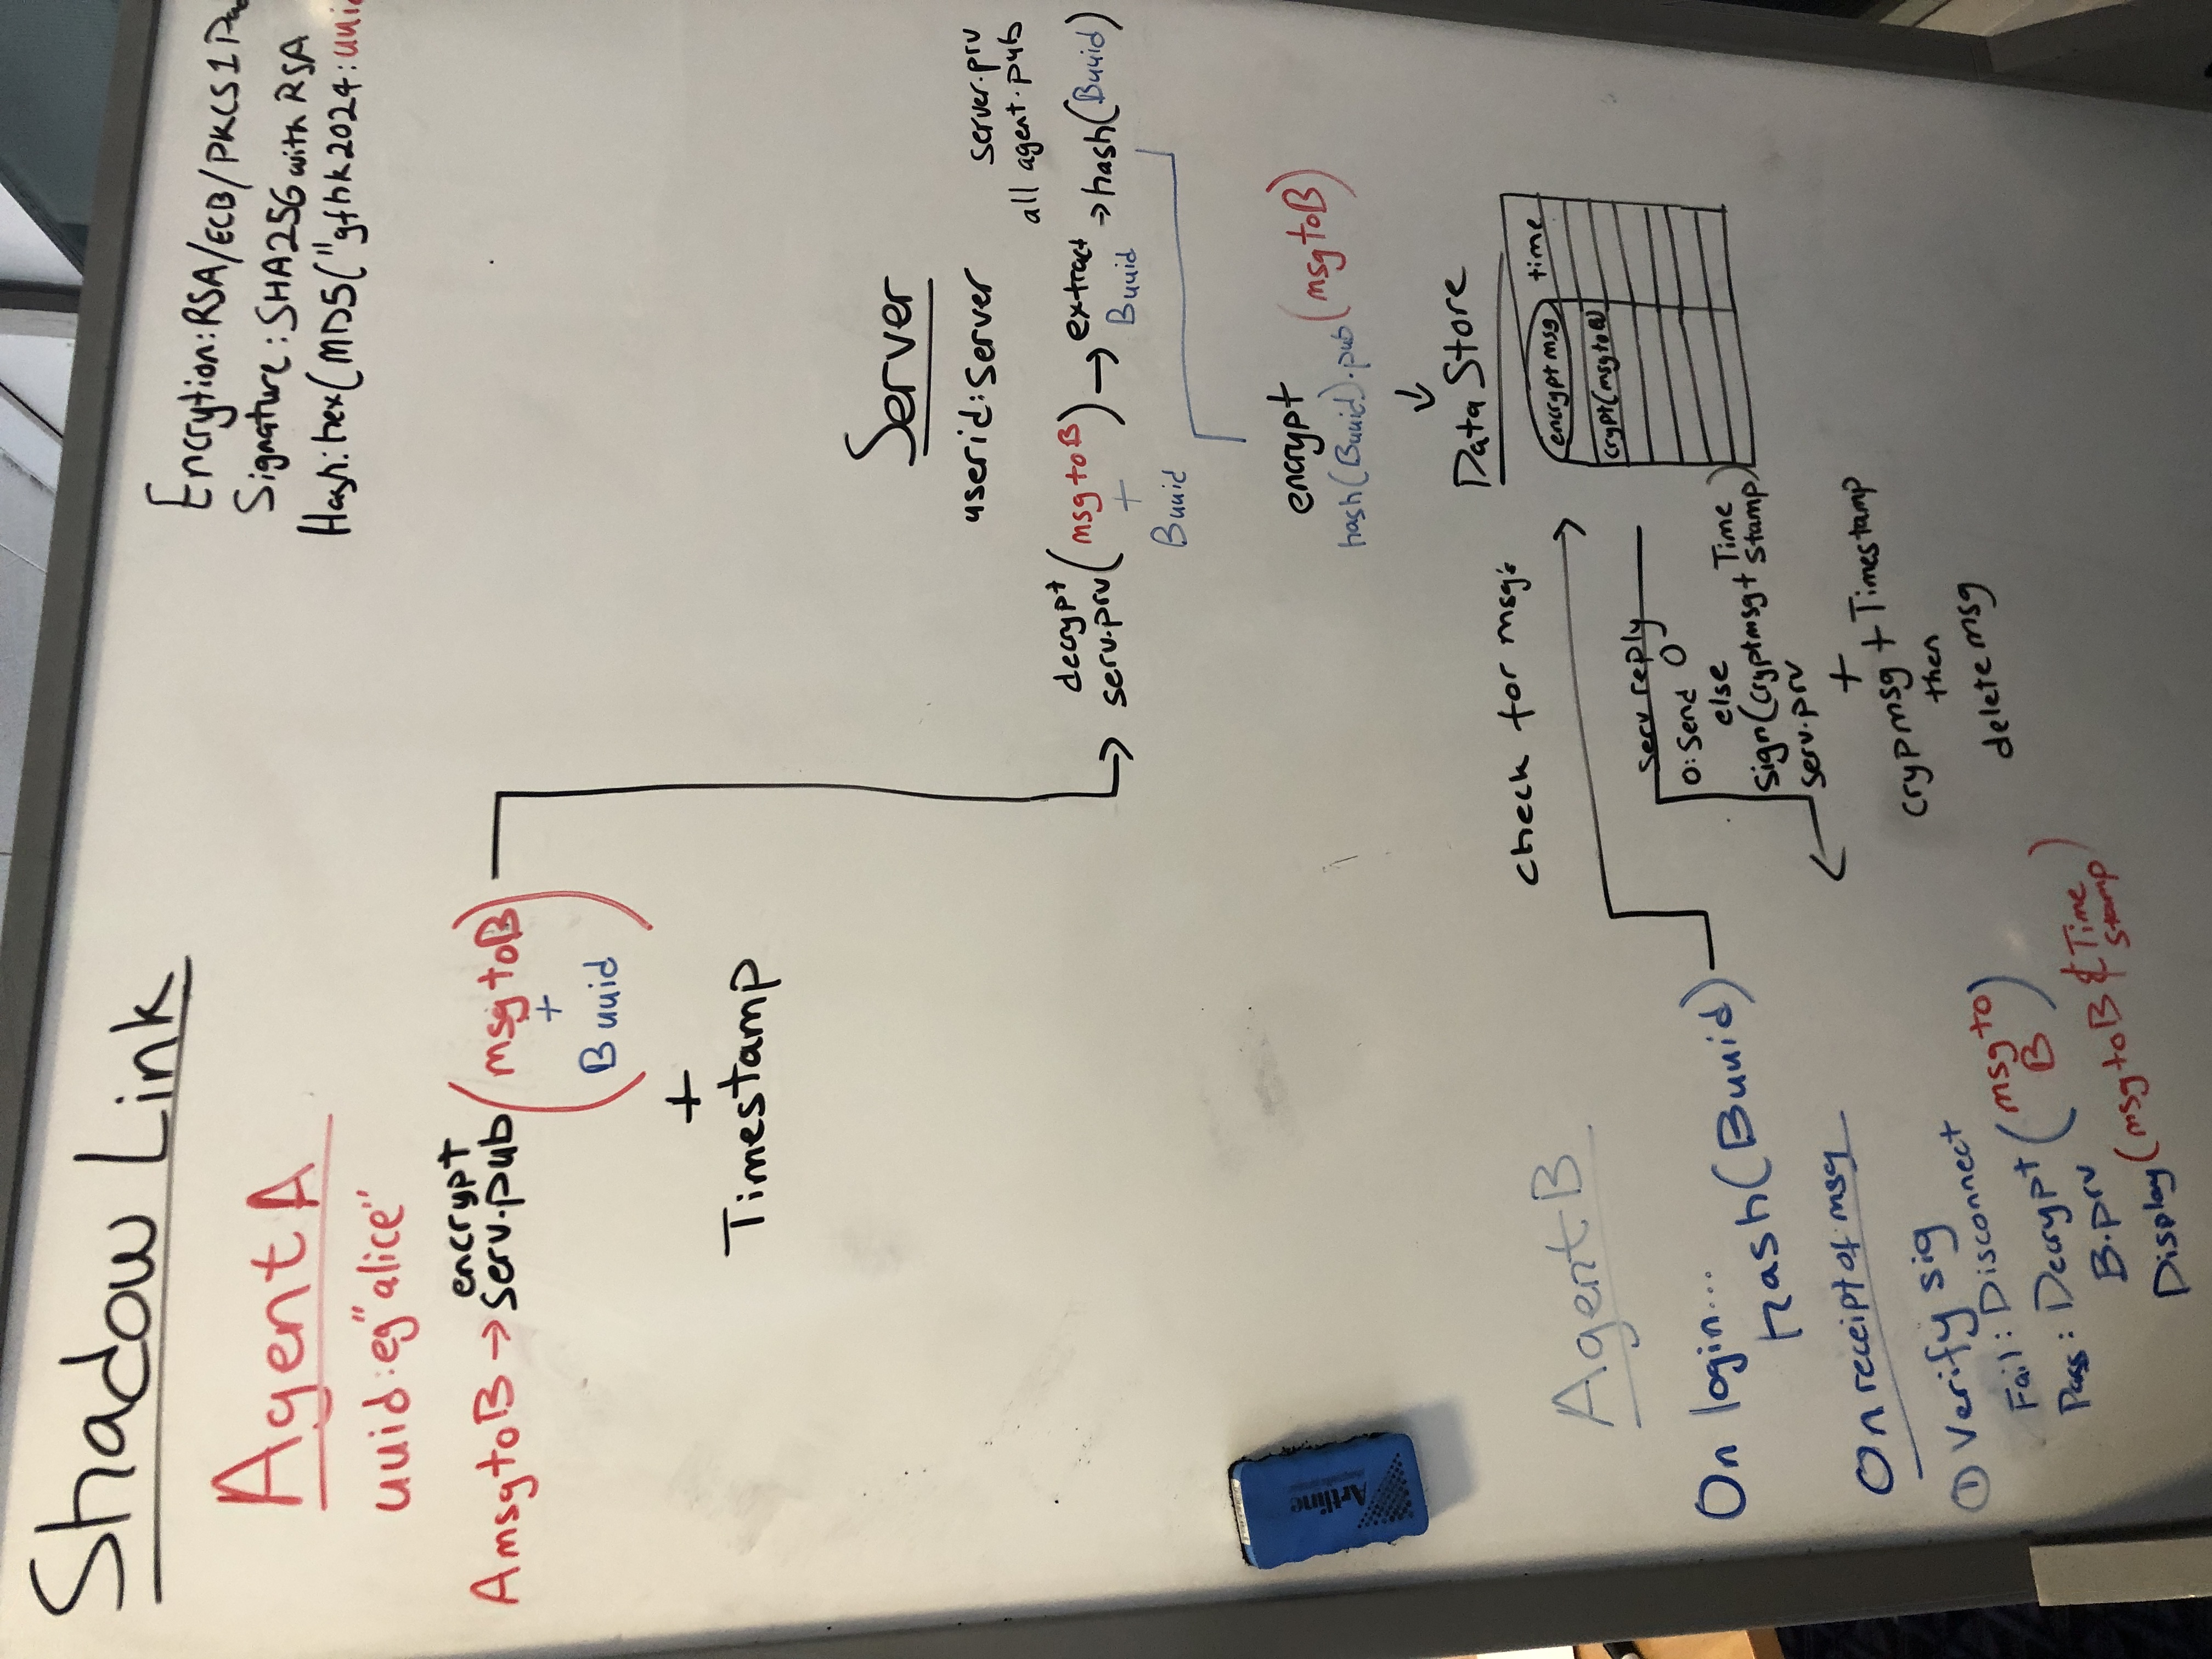 Shadow Link
Encrytion: RSA/ECB/PKCS1 Pad
Signature: SHA256 with RSA
Hash: hex(MD5("gfhk2024:uuid
Agent A
uuid: eg "alice"
A msg to B → encrypt
serv.pub (msg to B
+
B uuid)
+
Timestamp
Server
userid: Server
server.prv
all agent.pub
decrypt
serv.prv (msg to B
+
Buuid) → extract
Buuid → hash(Buuid)
encrypt
hash(Buuid).pub (msg to B)
↓
Data Store
encrypt msg
time
crypt(msg to B)
check for msg's
serv reply
0: Send 0
else
Sign(cryptmsg + Time
Stamp)
serv.prv
+
crypmsg + Timestamp
then
delete msg
Agent B
On login...
hash(Buuid)
On receipt of msg
① Verify sig
Fail: Disconnect
Pass: Decrypt (msg to
B)
B.prv
Display (msg to B & Time
Stamp)
Artline